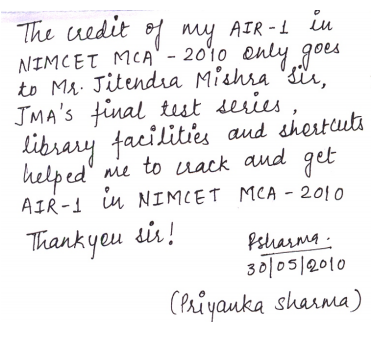 The credit of my AIR-1 in
NIMCET MCA - 2010 only goes
to Mr. Jitendra Mishra Sir,
JMA's final test series,
library facilities and shortcuts
helped me to crack and get
AIR-1 in NIMCET MCA - 2010
Thankyou sir!
Psharma.
30/05/2010
(Priyanka sharma)